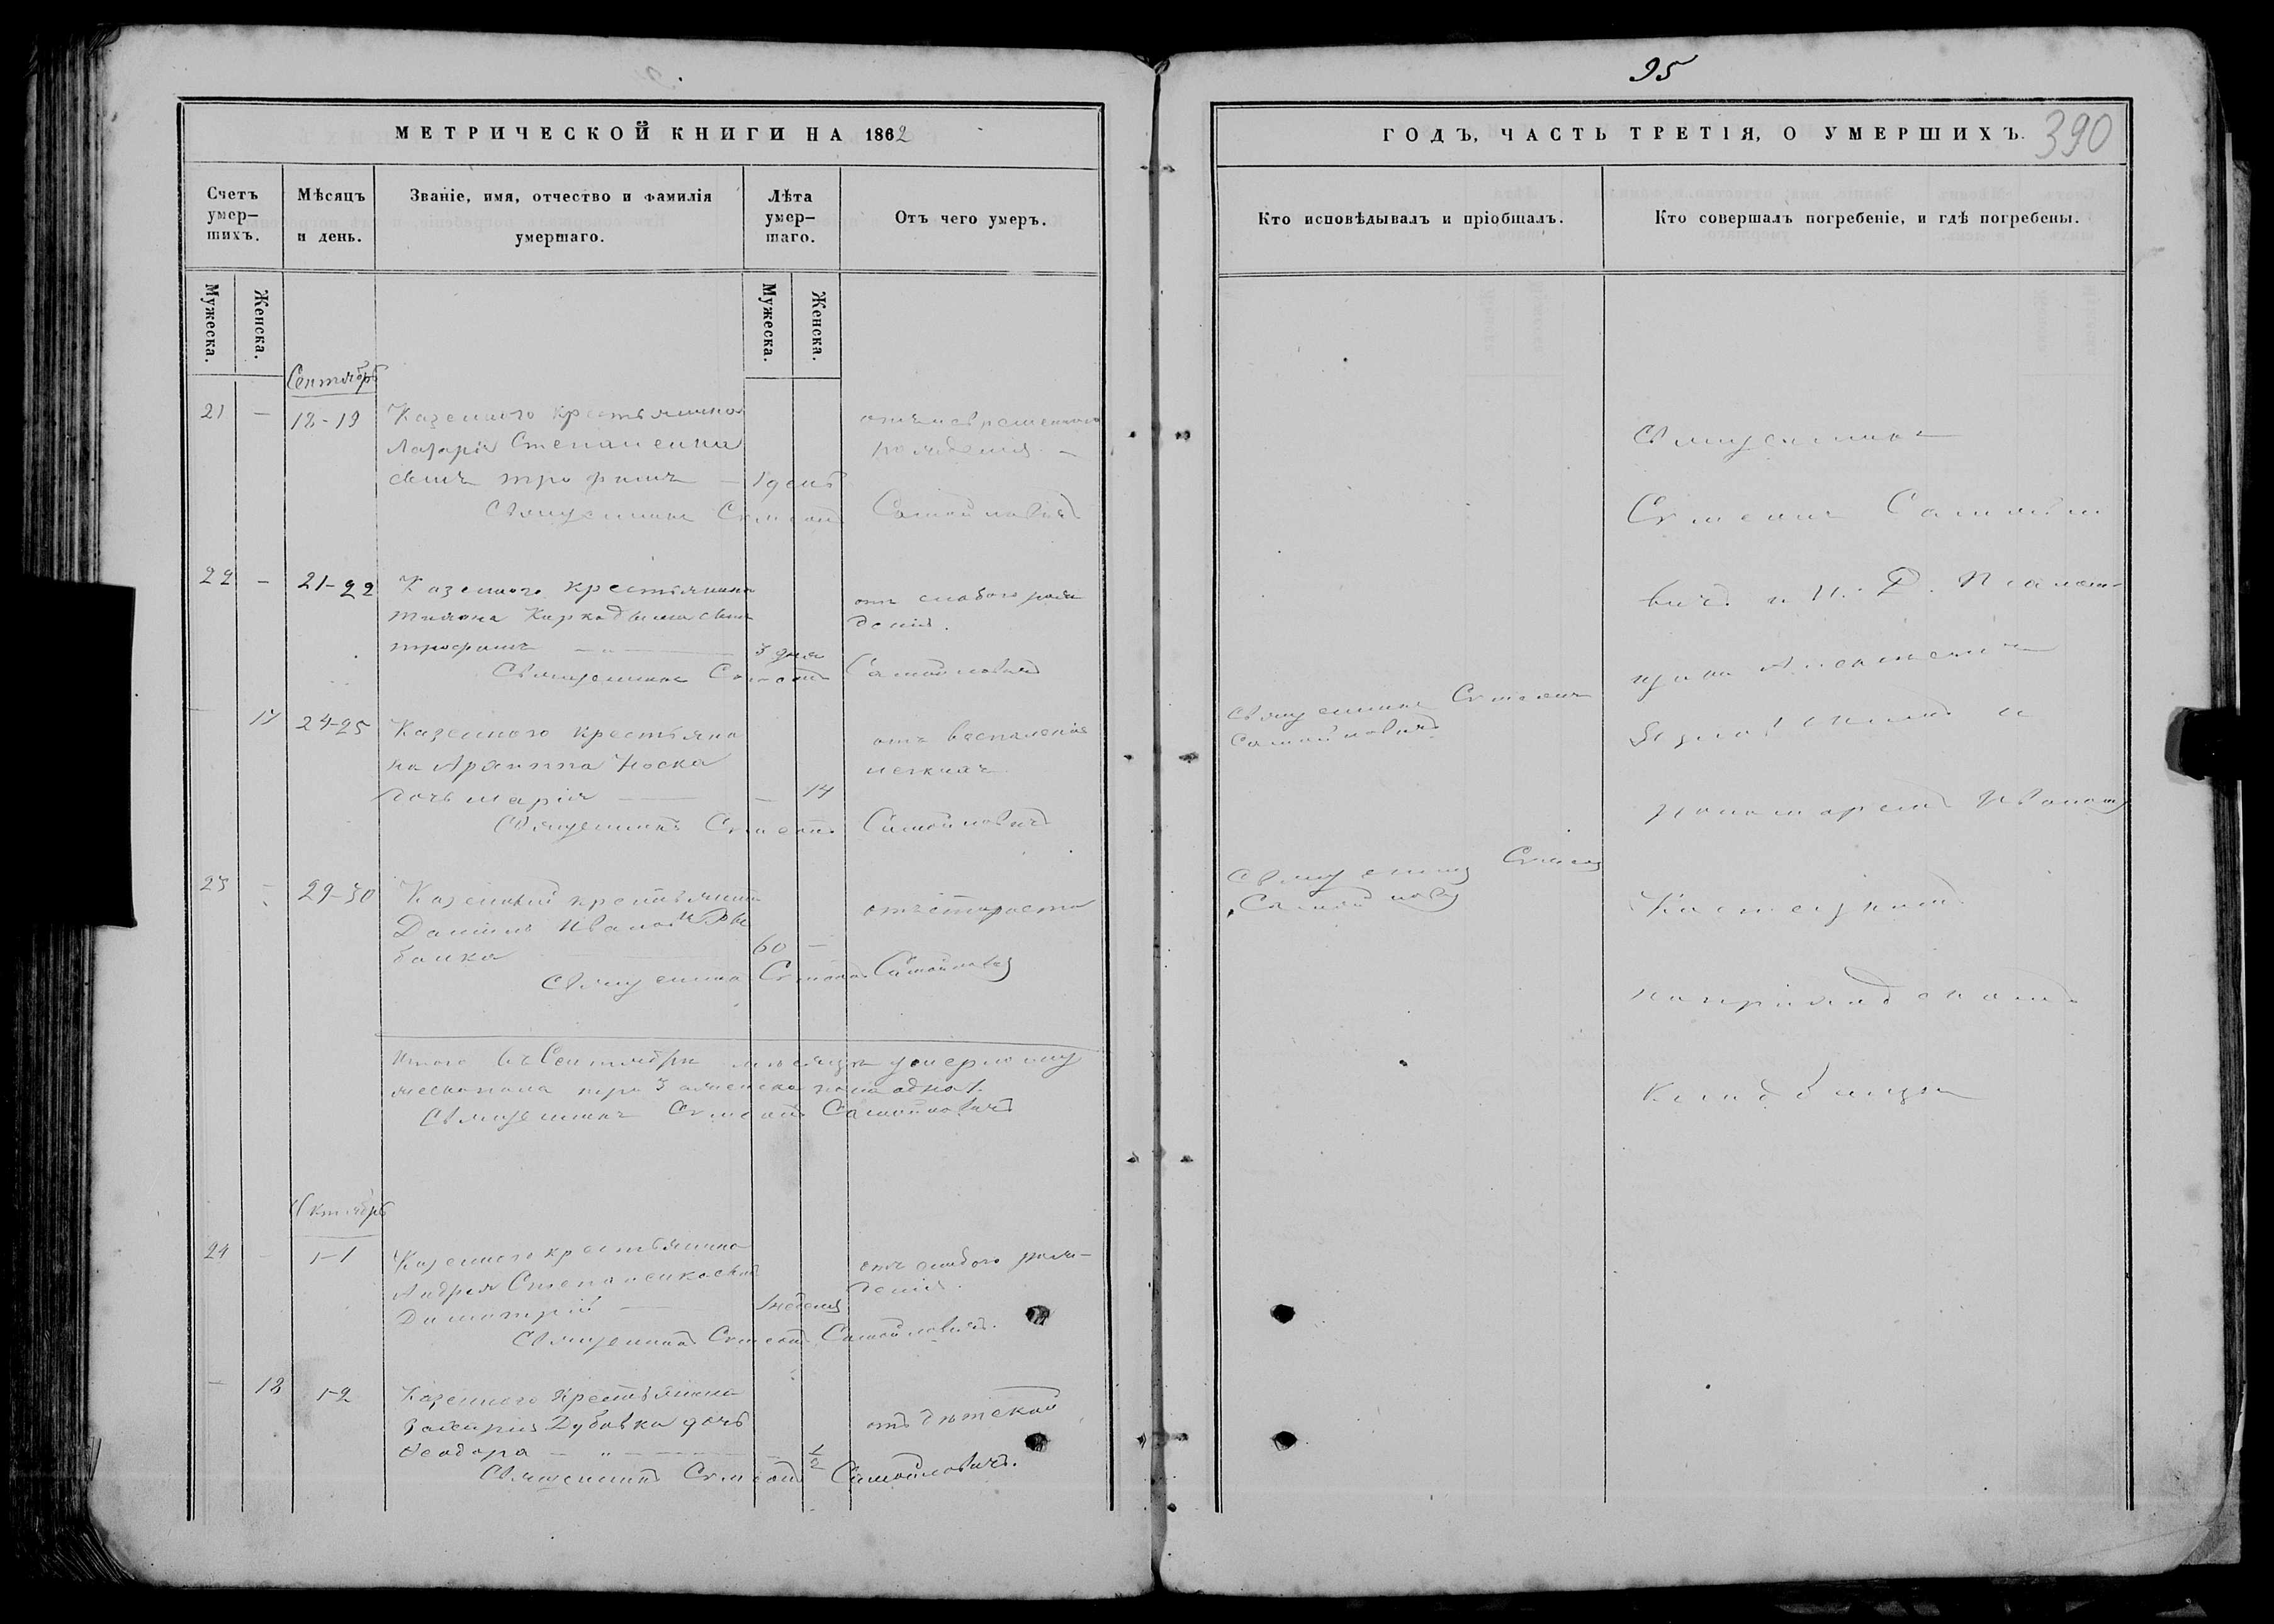 95
390
МЕТРИЧЕСКОЙ КНИГИ НА 1862
ГОДЪ, ЧАСТЬ ТРЕТІЯ, О УМЕРШИХЪ.
Счетъ умер-
шихъ.
Мѣсяцъ
и день.
Званіе, имя, отчество и фамилія
умершаго.
Лѣта
умер-
шаго.
Отъ чего умеръ.
Кто исповѣдывалъ и пріобщалъ.
Кто совершалъ погребеніе, и гдѣ погребены.
Мужеска.
Женска.
Мужеска.
Женска.
Сентябрь
21 — 18-19 Казенного крестьянина
Лазаря Степаненка
сынъ Трофимъ — 1 день
рожденія —
Священникъ Симеонъ Самойловичъ
22 — 21-22 Казенного крестьянина
сынъ
Трофимъ — 3 дня
отъ слабого рож
денія.
Священникъ Симеонъ Самойловичъ
— 17 24-25 Казенного крестьяни
на Архиппа Носка
дочь Марія — — 14
отъ воспаленія
легкихъ
Священникъ Симеонъ Самойловичъ
23 — 29-30 Казенный крестьянинъ
Даніилъ Ивановъ Ры
балка 60 —
отъ старости
Священникъ Симеонъ Самойловичъ
Итого въ Сентябрѣ мѣсяцѣ умерло му
жескаго пола три 3 а женска пола одна 1.
Священникъ Симеонъ Самойловичъ
Октябрь
24 — 1-1 Казенного крестьянина
Андрея Степаненка сынъ
Димитрій — 1 неделя
отъ слабого рож-
денія.
Священникъ Симеонъ Самойловичъ.
— 18 1-2 Казенного крестьянина
Дубовка дочь
Феодора — „ — — 1/2
отъ дѣтской
Священникъ Симеонъ Самойловичъ.
Священникъ Симеонъ
Самойловичъ
Священникъ Симеонъ
Самойловичъ
Священникъ
Симеонъ Самойло
вичъ и И. Д. Псалом-
щика
и
Пономаремъ Иваномъ
на приходскомъ
Кладбищѣ